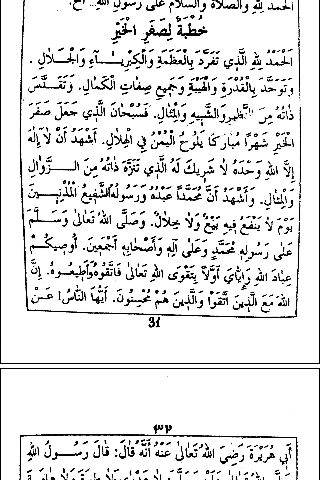 الحمد لله والصلاة والسلام على رسول الله
خُطْبَةٌ لِصَفَرِ الْخَيْرِ
اَلْحَمْدُ لِلهِ الَّذِي تَفَرَّدَ بِالْعَظَمَةِ وَالْكِبْرِيَــاءِ وَالْجَلَالِ .
وَتَوَحَّدَ بِالْقُدْرَةِ وَالْهَيْبَةِ وَجَمِيعِ صِفَاتِ الْكَمَالِ. وَتَقَدَّسَ
ذَاتُهُ مِنَ النَّظِيرِ وَالشَّبِيهِ وَالْمِثَالِ. فَسُبْحَانَ الَّذِي جَعَلَ صَفَرَ
الْخَيْرِ شَهْرًا مُبَارَكًا يَلُوحُ الْيُمْنُ فِي الْهِلَالِ. اَشْهَدُ اَنْ لَا اِلٰهَ
اِلَّا اللهُ وَحْدَهُ لَا شَرِيكَ لَهُ الَّذِي تَنَزَّهَ ذَاتُهُ مِنَ الــزَّوَالِ
وَالْمِثَالِ. وَاَشْهَدُ اَنَّ مُحَمَّدًا عَبْدُهُ وَرَسُولُهُ الشَّفِيعُ الْمُذْنِبِــينَ
يَوْمَ لَا يَنْفَعُ فِيهِ بَيْعٌ وَلَا خِلَالٌ. وَصَلَّى اللهُ تَعَالَى وَسَــلَّمَ
عَلَى رَسُولِهِ مُحَمَّدٍ وَعَلَى آلِهِ وَاَصْحَابِهِ اَجْمَعِينَ. اُوصِيكُــمْ
عِبَادَ اللهِ وَاِيَّايَ اَوَّلًا بِتَقْوَى اللهِ تَعَالَى فَاتَّقُوهُ وَاَطِيعُــوهُ. اِنَّ
اللهَ مَعَ الَّذِينَ اتَّقَوْا وَالَّذِينَ هُمْ مُحْسِنُونَ. اَيُّهَا النَّاسُ! عَــنْ
31
٣٢
اَبِي هُرَيْرَةَ رَضِيَ اللهُ تَعَالَى عَنْهُ اَنَّهُ قَالَ: قَالَ رَسُــولُ اللهِ